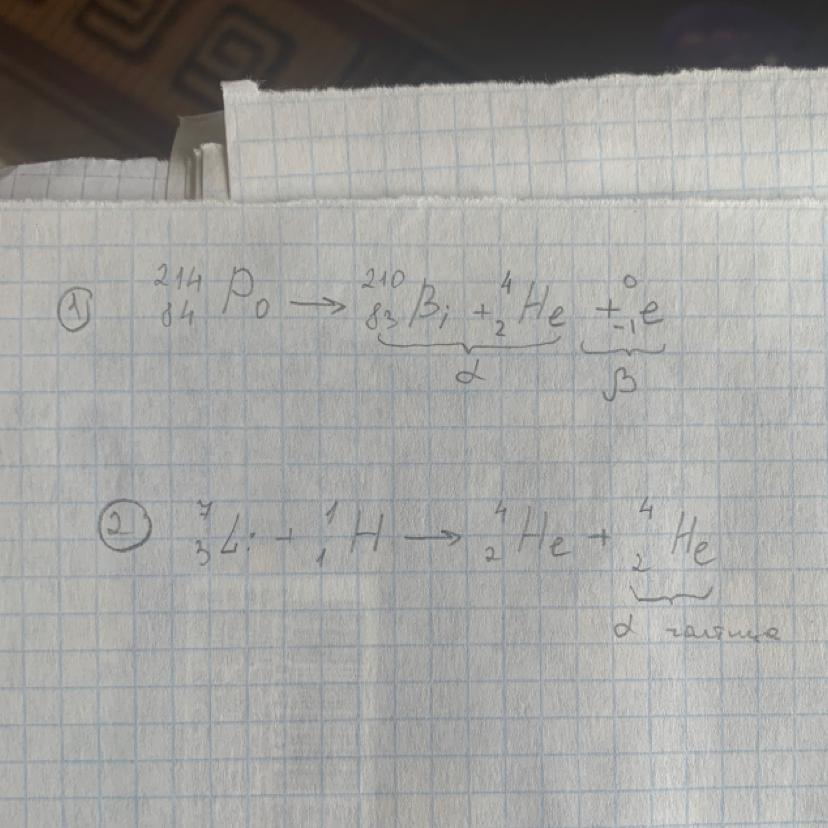 ① ²¹⁴₈₄Po → ²¹⁰₈₃Bi + ⁴₂He + ⁰₋₁e
α β
② ⁷₃Li + ¹₁H → ⁴₂He + ⁴₂He
α частица